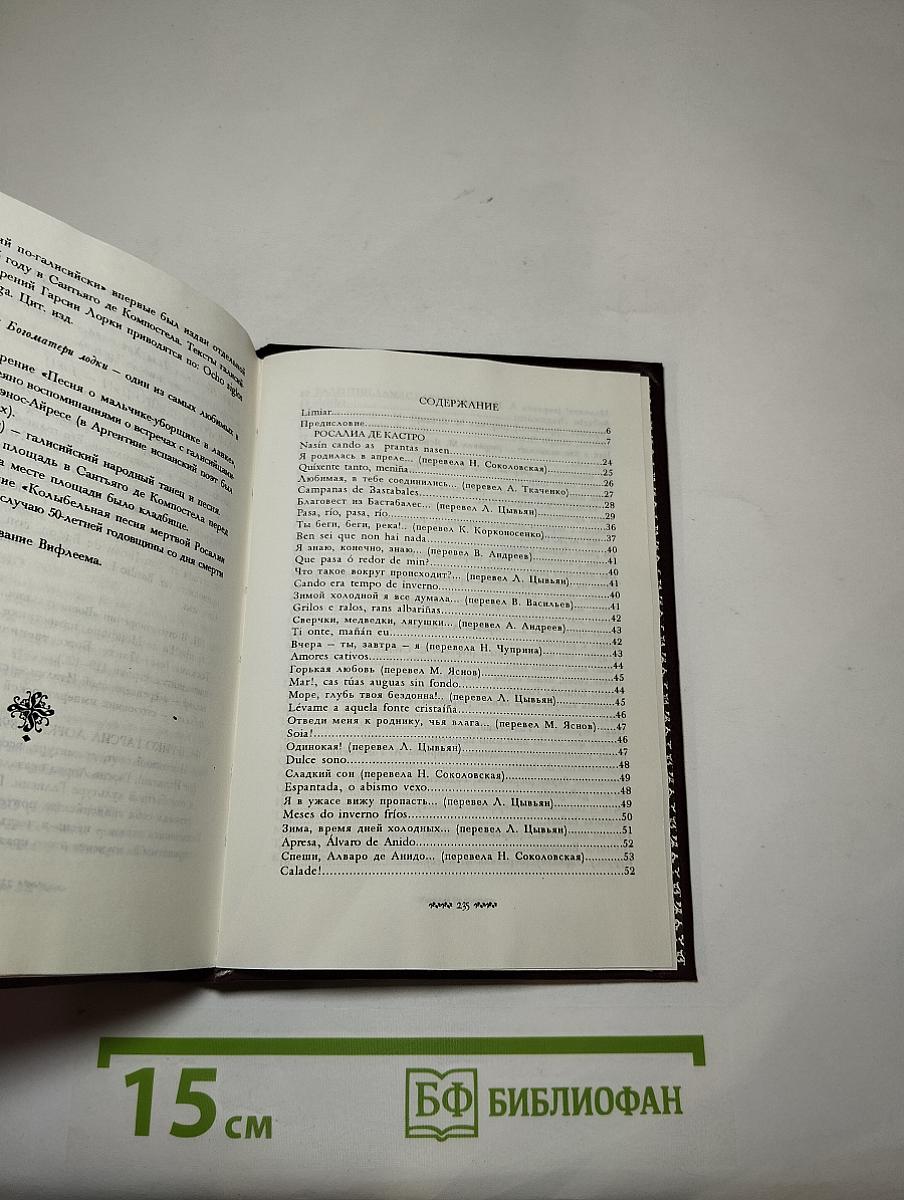 ий по-галисийски» впервые был издан отдельной
году в Сантьяго де Компостела. Тексты галисий
рений Гарсии Лорки приводятся по: Ocho siglos
ga. Цит. изд.
Богоматери лодки — один из самых любимых в
рение «Песня о мальчике-уборщике в лавке»
еяно воспоминаниями о встречах с галисийцами
энос-Айресе (в Аргентине испанский поэт был
х).
) — галисийский народный танец и песня.
площадь в Сантьяго де Компостела перед
а месте площади было кладбище.
ие «Колыбельная песня мертвой Росалии
случаю 50-летней годовщины со дня смерти
вание Вифлеема.
СОДЕРЖАНИЕ
Limiar....6
Предисловие....7
РОСАЛИА ДЕ КАСТРО
Nasín cando as prantas nasen....24
Я родилась в апреле... (перевела Н. Соколовская)....25
Quíxente tanto, meniña....26
Любимая, в тебе соединились... (перевел А. Ткаченко)....27
Campanas de Bastabales....28
Благовест из Бастабалес... (перевел Л. Цывьян)....29
Pasa, río, pasa, río....36
Ты беги, беги, река!.. (перевел К. Корконосенко)....37
Ben sei que non hai nada....40
Я знаю, конечно, знаю... (перевел В. Андреев)....41
Que pasa ó redor de min?....40
Что такое вокруг происходит?... (перевел Л. Цывьян)....41
Cando era tempo de inverno....40
Зимой холодной я все думала... (перевел В. Васильев)....41
Grilos e ralos, rans albariñas....42
Сверчки, медведки, лягушки... (перевел А. Андреев)....43
Ti onte, mañán eu....42
Вчера — ты, завтра — я (перевела Н. Чуприна)....43
Amores cativos....44
Горькая любовь (перевел М. Яснов)....45
Mar!, cas túas auguas sin fondo....44
Море, глубь твоя бездонна!.. (перевел Л. Цывьян)....45
Lévame a aquela fonte cristaíña....46
Отведи меня к роднику, чья влага... (перевел М. Яснов)....47
Soia!....46
Одинокая! (перевел Л. Цывьян)....47
Dulce sono....48
Сладкий сон (перевела Н. Соколовская)....49
Espantada, o abismo vexo....48
Я в ужасе вижу пропасть... (перевел Л. Цывьян)....49
Meses do inverno fríos....50
Зима, время дней холодных... (перевел Л. Цывьян)....51
Apresa, Álvaro de Anido....52
Спеши, Алваро де Анидо... (перевела Н. Соколовская)....53
Calade!....52
235
15 см
БФ БИБЛИОФАН